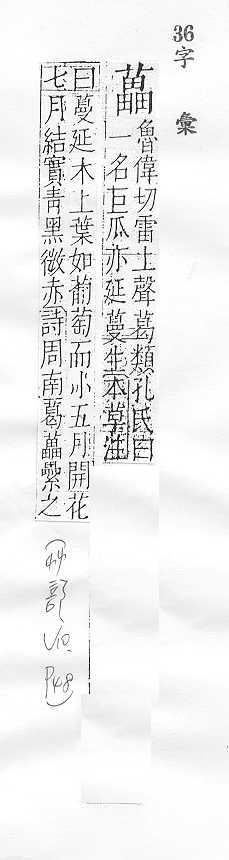 36
字 彙
藟 魯偉切雷上聲葛類孔氏曰
一名巨瓜亦延蔓生本草注
曰蔓延木上葉如葡萄而小五月開花
七月結實青黑微赤詩周南葛藟纍之
(艸部 P48)